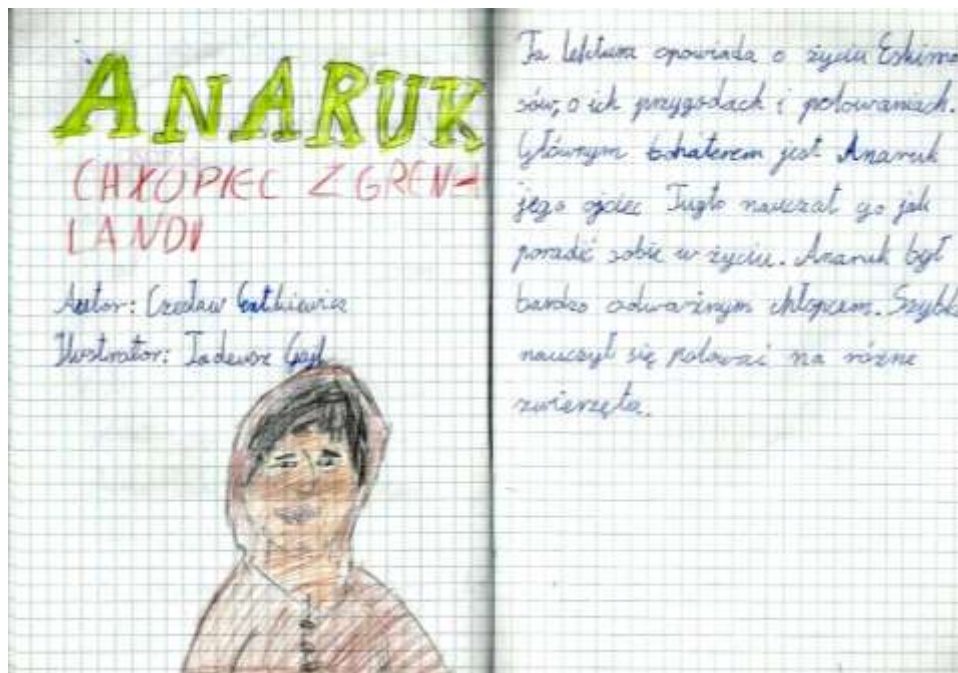 ANARUK
CHŁOPIEC Z GREN-
LANDI
Autor: Czesław Centkiewicz
Ilustrator: Tadeusz Gajl
Ta lektura opowiada o życiu Eskimo
sów, o ich przygodach i polowaniach.
Głównym bohaterem jest Anaruk
jego ojciec Tugto nauczał go jak
poradzić sobie w życiu. Anaruk był
bardzo odważnym chłopcem. Szybko
nauczył się polować na różne
zwierzęta.